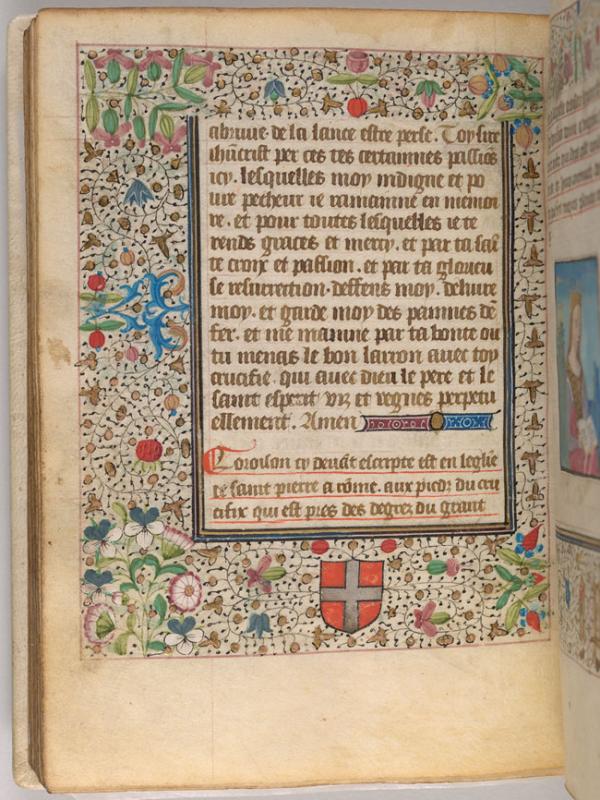 abruue de la lance estre perse. Toy sire
ihucrist per ces tes certainnes passiōs
icy. lesquelles moy indigne et po
ure pecheur ie ramainne en memoi
re. et pour toutes lesquelles ie te
rends graces et mercy. et par ta sāi
te croix et passion. et par ta glorieu
se resurrection. deffens moy. deliure
moy. et garde moy des painnes dē
fer. et me mainne par ta bonte ou
tu menas le bon larron auec toy
crucifie. qui auec dieu le pere et le
saint esperit vis et regnes perpetu
ellement. Amen
Loroison cy deuāt escripte est en leglise
de saint pierre a rōme. aux piedz du cru
cifix qui est pres des degrez du grant